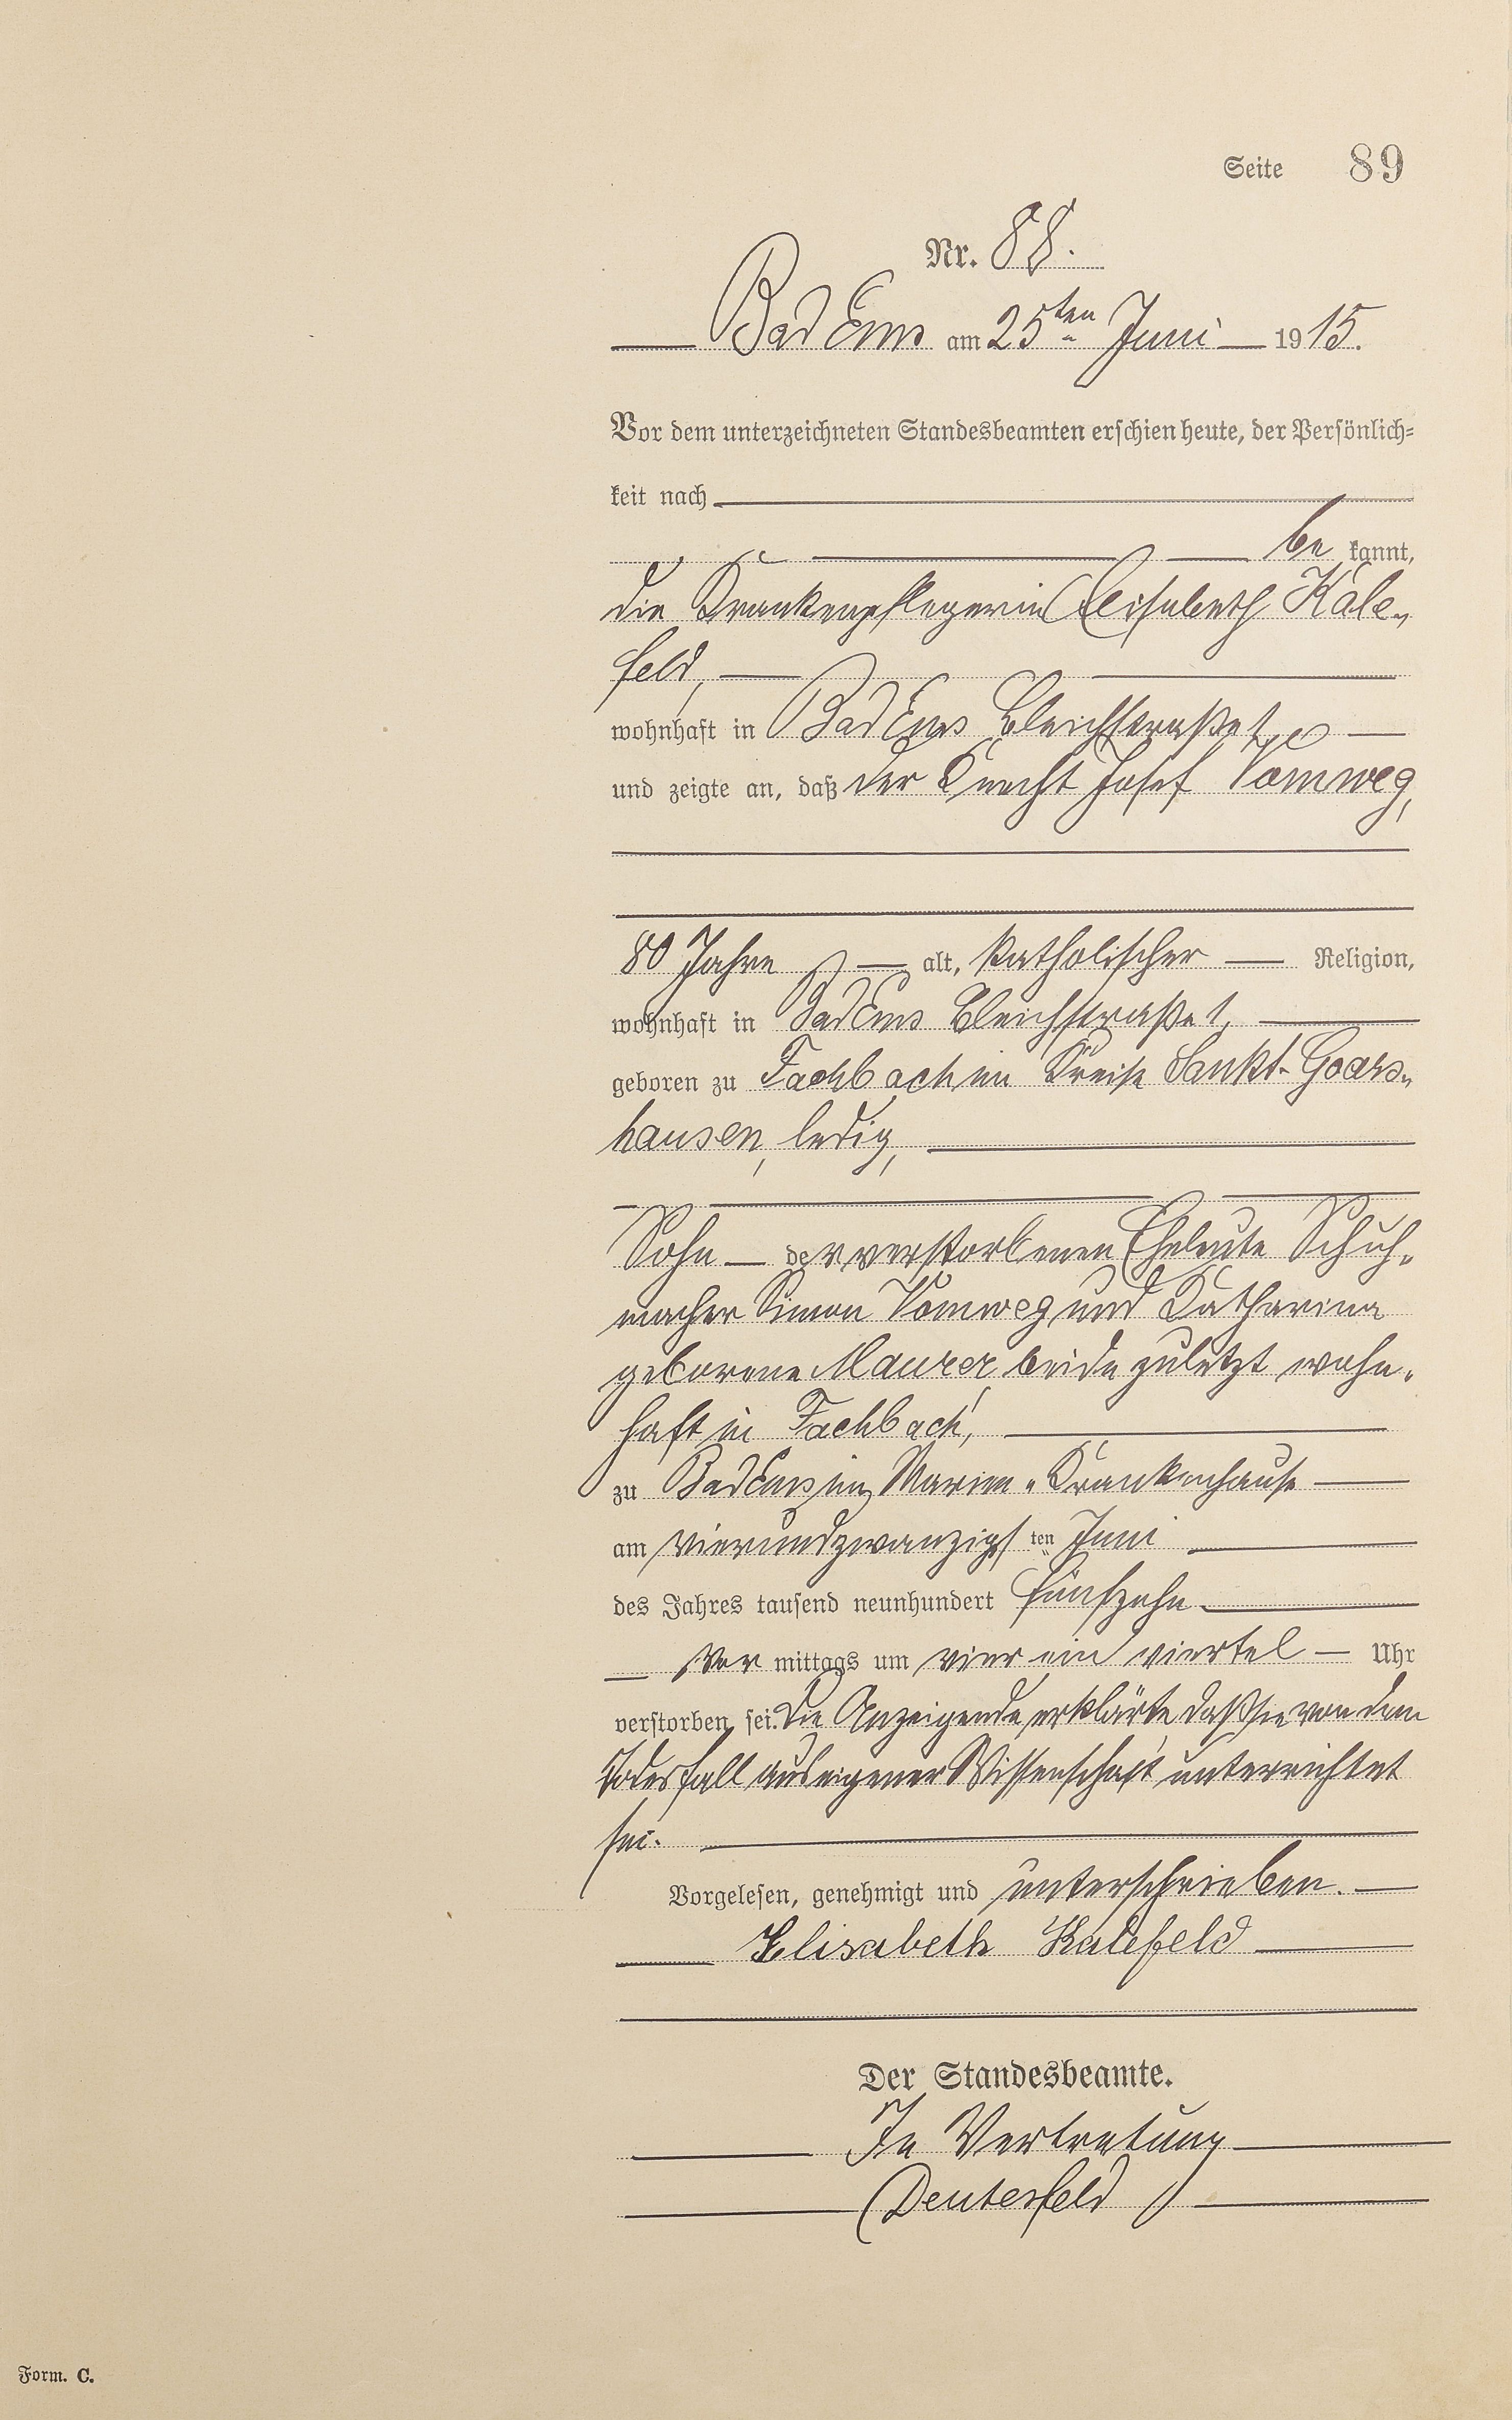 Seite 89
Nr. 88.
Bad Ems am 25ten Juni 1915.
Vor dem unterzeichneten Standesbeamten erschien heute, der Persönlich-
keit nach
be kannt,
die Krankenpflegerin Elisabeth Kale-
feld,
wohnhaft in Bad Ems Bleichstraße 1,
und zeigte an, daß der Knecht Josef Vomweg,
80 Jahre alt, katholischer Religion,
wohnhaft in Bad Ems Bleichstraße 1,
geboren zu Fachbach im Kreise Sankt-Goars-
hausen, ledig,
Sohn der verstorbenen Eheleute Schuh-
macher Simon Vomweg und Katharina
geborene Maurer beide zuletzt wohn-
haft in Fachbach,
zu Bad Ems im Marien-Krankenhause
am vierundzwanzigsten Juni
des Jahres tausend neunhundert fünfzehn
Vor mittags um vier ein viertel Uhr
verstorben sei. Die Anzeigende erklärte, daß sie von dem
Todesfall aus eigener Wissenschaft unterrichtet
sei.
Vorgelesen, genehmigt und unterschrieben.
Elisabeth Kalefeld
Der Standesbeamte.
In Vertretung
Deuterfeld
Form. C.